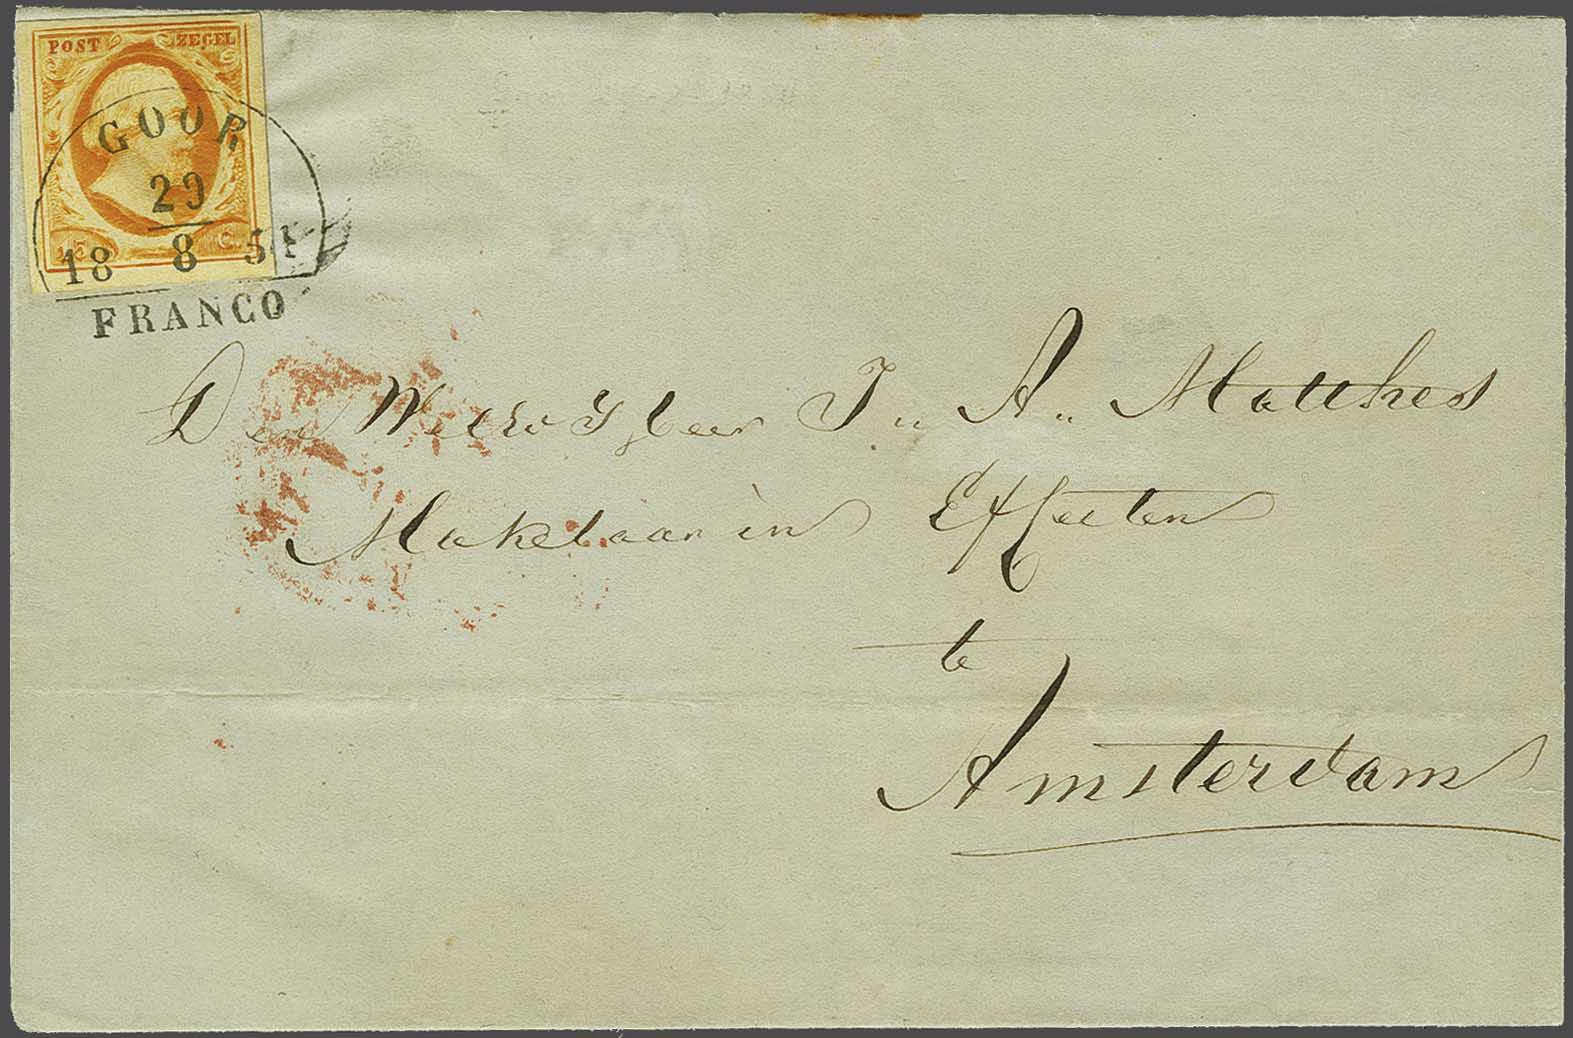 POST ZEGEL
GOOR
29
18 8 54
15 C.
FRANCO
Den WelEd Heer J. A. Matthes
Makelaar in Effecten
te
Amsterdam